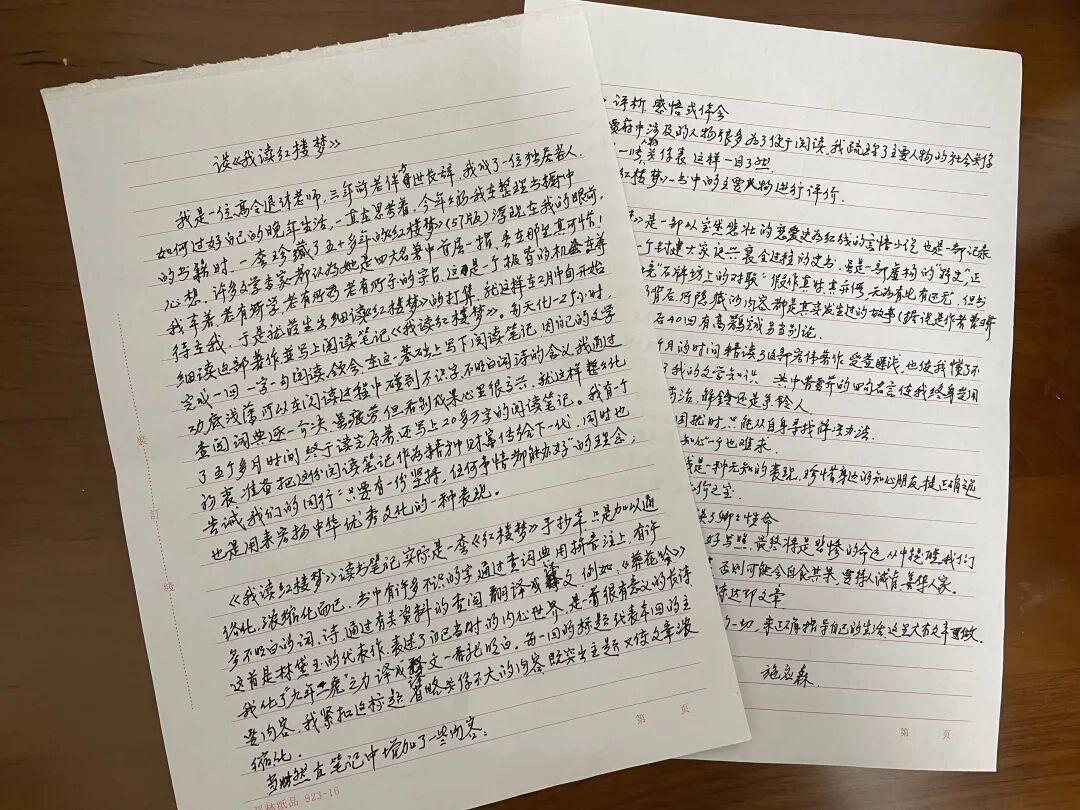 谈《我读红楼梦》
我是一位高令退休老师,三年前老伴与世长辞,我成了一位独居老人.
如何过好自己的晚年生活,一直在思考着,今年上海我在整理书橱中
的书籍时,一套珍藏了五十多年的《红楼梦》(57版)浮现在我的眼前,
心想,许多文学专家都认为她是四大名著中首屈一指,丢在那里真可惜!
我本着,老有所学,老有所为,老有所乐的宗旨,这是一个极普的机会在等
待着我,于是就萌生出细读《红楼梦》的打算,就这样在2月中旬开始
细读这部著作並写上阅读笔记《我读红楼梦》。每天化1-2.5小时,
完成一回,一字一句阅读,领会,在这一基础上写下阅读笔记,因自己的文学
功底浅薄,所以在阅读过程中碰到不识字,不明白词,诗的含义,我通过
查阅词典逐一介决,虽疲劳,但看到成果心里很高兴,就这样整整化
了五个多月时间,终于读完原著还写上20多万字的阅读笔记。我有个
初衷,准备把这份阅读笔记作为精神财富传给下一代,同时也
告诫我们的同行:“只要有一份坚持,任何事情都能办好”的理念;
也是用来宏扬中华优秀文化的一种表现。
《我读红楼梦》读书笔记实际是一套《红楼梦》手抄本,只是加以通
俗化,浓缩化而已,书中有许多不识的字,通过查词典用拼音注上,有许
多不明白的词,诗,通过有关资料的查阅,翻译成释文,例如:《葬花吟》
这首是林黛玉的代表作,表述了自己当时的内心世界,是一首很有意义的长诗
我化了“九牛二虎”之力译成释文一看就明白。每一回的标题代表本回的主
要内容,我紧扣这标题,省略关係不大的内容,既突出主题又使文章浓
缩化.
当然在笔记中增加了一些内容:
装
訂
綫
第 页
林纸品 923-16
评析,感悟或体会
中涉及的人物很多为了便于阅读,我疏理了主要人物的社会关係
关係表,这样一目了然.
红楼梦》一书中的主要人物进行评价.
》是一部以宝黛悲壮的恋爱史为红线的言情小说,也是一部记录
一个封建大家族兴衰全过程的史书,虽是一部虚构的“野史”正
石碑坊上的对联“假作真时真亦假,无为有处有还无”但书
背后所隐藏的内容都是真实发生过的故事(据说是作者曹
后40回有高鹗续另当别论.
个月的时间精读了这部宏伟著作,受益匪浅,也使我懂了不
了我的文学知识,其中着重养的四句名言使我终身受用
解铃还是系铃人.
困扰时,只能从自身寻找解决办法.
知心一个也难求.
是一种无知的表现,珍惜身边的知心朋友提正确之诚
价之宝.
误了卿卿性命
最终将是悲惨的命运,从中提醒我们
否则可能今自食其果,
练达即文章
的一切,来正确指导自己的生活,这里大有文章要做.
施宏森
第 页